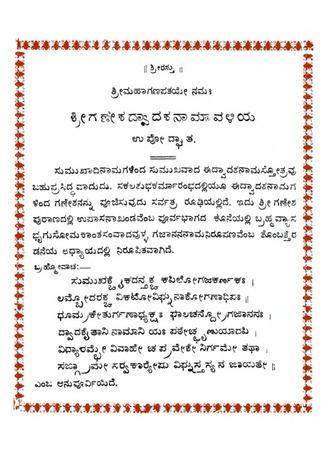 || ಶ್ರೀರಸ್ತು ||
ಶ್ರೀಮಹಾಗಣಪತಯೇ ನಮಃ
ಶ್ರೀಗಣೇಶದ್ವಾದಶನಾಮಾವಳಿಯ
ಉಪೋದ್ಘಾತ.
ಸುಮುಖಾದಿನಾಮಗಳಿಂದ ಸುಮುಖವಾದ ಈದ್ವಾದಶನಾಮಸ್ತೋತ್ರವು
ಬಹುಪ್ರಸಿದ್ಧವಾದುದು. ಸಕಲಶುಭಕರ್ಮಾರಂಭದಲ್ಲಿಯೂ ಈದ್ವಾದಶನಾಮಗ
ಳಿಂದ ಗಣೇಶನನ್ನು ಪೂಜಿಸುವುದು ಸರ್ವತ್ರ ರೂಢಿಯಲ್ಲಿದೆ. ಇದು ಶ್ರೀ ಗಣೇಶ
ಪುರಾಣದಲ್ಲಿ ಉಪಾಸನಾಖಂಡವೆಂಬ ಪೂರ್ವಭಾಗದ ಕೊನೆಯಲ್ಲಿ ಬ್ರಹ್ಮವ್ಯಾಸ
ಭೃಗುಸೋಮಕಾಂತಸಂವಾದವುಳ್ಳ ಗಜಾನನನಾಮನಿರೂಪಣವೆಂಬ ತೊಂಬತ್ತೆರ
ಡನೆಯ ಅಧ್ಯಾಯದಲ್ಲಿ ನಿರೂಪಿತವಾಗಿದೆ.
ಬ್ರಹ್ಮೋವಾಚ:—
ಸುಮುಖಶ್ಚೈಕದನ್ತಶ್ಚ ಕಪಿಲೋಗಜಕರ್ಣಕಃ
ಲಮ್ಬೋದರಶ್ಚ ವಿಕಟೋವಿಘ್ನನಾಶೋಗಣಾಧಿಪಃ ||
ಧೂಮ್ರಕೇತುರ್ಗಣಾಧ್ಯಕ್ಷಃ ಫಾಲಚನ್ದ್ರೋಗಜಾನನಃ
ದ್ವಾದಶೈತಾನಿ ನಾಮಾನಿ ಯಃ ಪಠೇಚ್ಛೃಣುಯಾದಪಿ
ವಿದ್ಯಾರಮ್ಭೇ ವಿವಾಹೇ ಚ ಪ್ರವೇಶೇ ನಿರ್ಗಮೇ ತಥಾ
ಸಙ್ಗ್ರಾಮೇ ಸರ್ವಕಾರ್ಯೇಷು ವಿಘ್ನಸ್ತಸ್ಯ ನ ಜಾಯತೇ ||
ಎಂಬ ಆನುಪೂರ್ವಿಯಿದೆ.